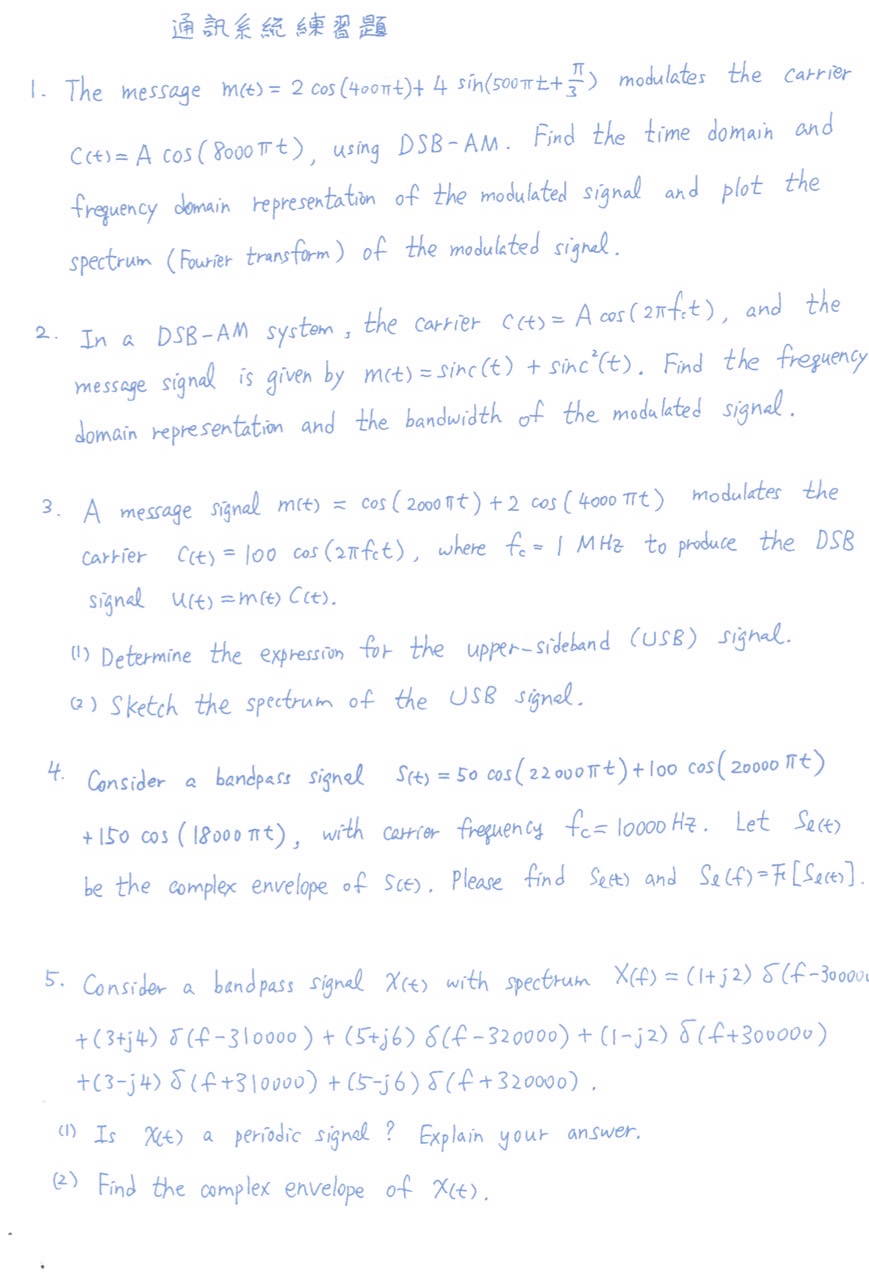 通訊系統練習題
1. The message m(t) = 2 cos(400πt) + 4 sin(500πt + π/3) modulates the carrier
C(t) = A cos(8000πt), using DSB-AM. Find the time domain and
frequency domain representation of the modulated signal and plot the
spectrum (Fourier transform) of the modulated signal.
2. In a DSB-AM system, the carrier C(t) = A cos(2πfct), and the
message signal is given by m(t) = sinc(t) + sinc²(t). Find the frequency
domain representation and the bandwidth of the modulated signal.
3. A message signal m(t) = cos(2000πt) + 2 cos(4000πt) modulates the
carrier C(t) = 100 cos(2πfct), where fc = 1 MHz to produce the DSB
signal u(t) = m(t) C(t).
(1) Determine the expression for the upper-sideband (USB) signal.
(2) Sketch the spectrum of the USB signal.
4. Consider a bandpass signal S(t) = 50 cos(22000πt) + 100 cos(20000πt)
+ 150 cos(18000πt), with carrier frequency fc = 10000 Hz. Let Sℓ(t)
be the complex envelope of S(t). Please find Sℓ(t) and Sℓ(f) = F[Sℓ(t)].
5. Consider a bandpass signal X(t) with spectrum X(f) = (1+j2) δ(f-30000
+(3+j4) δ(f-310000) + (5+j6) δ(f-320000) + (1-j2) δ(f+300000)
+(3-j4) δ(f+310000) + (5-j6) δ(f+320000).
(1) Is X(t) a periodic signal? Explain your answer.
(2) Find the complex envelope of X(t).